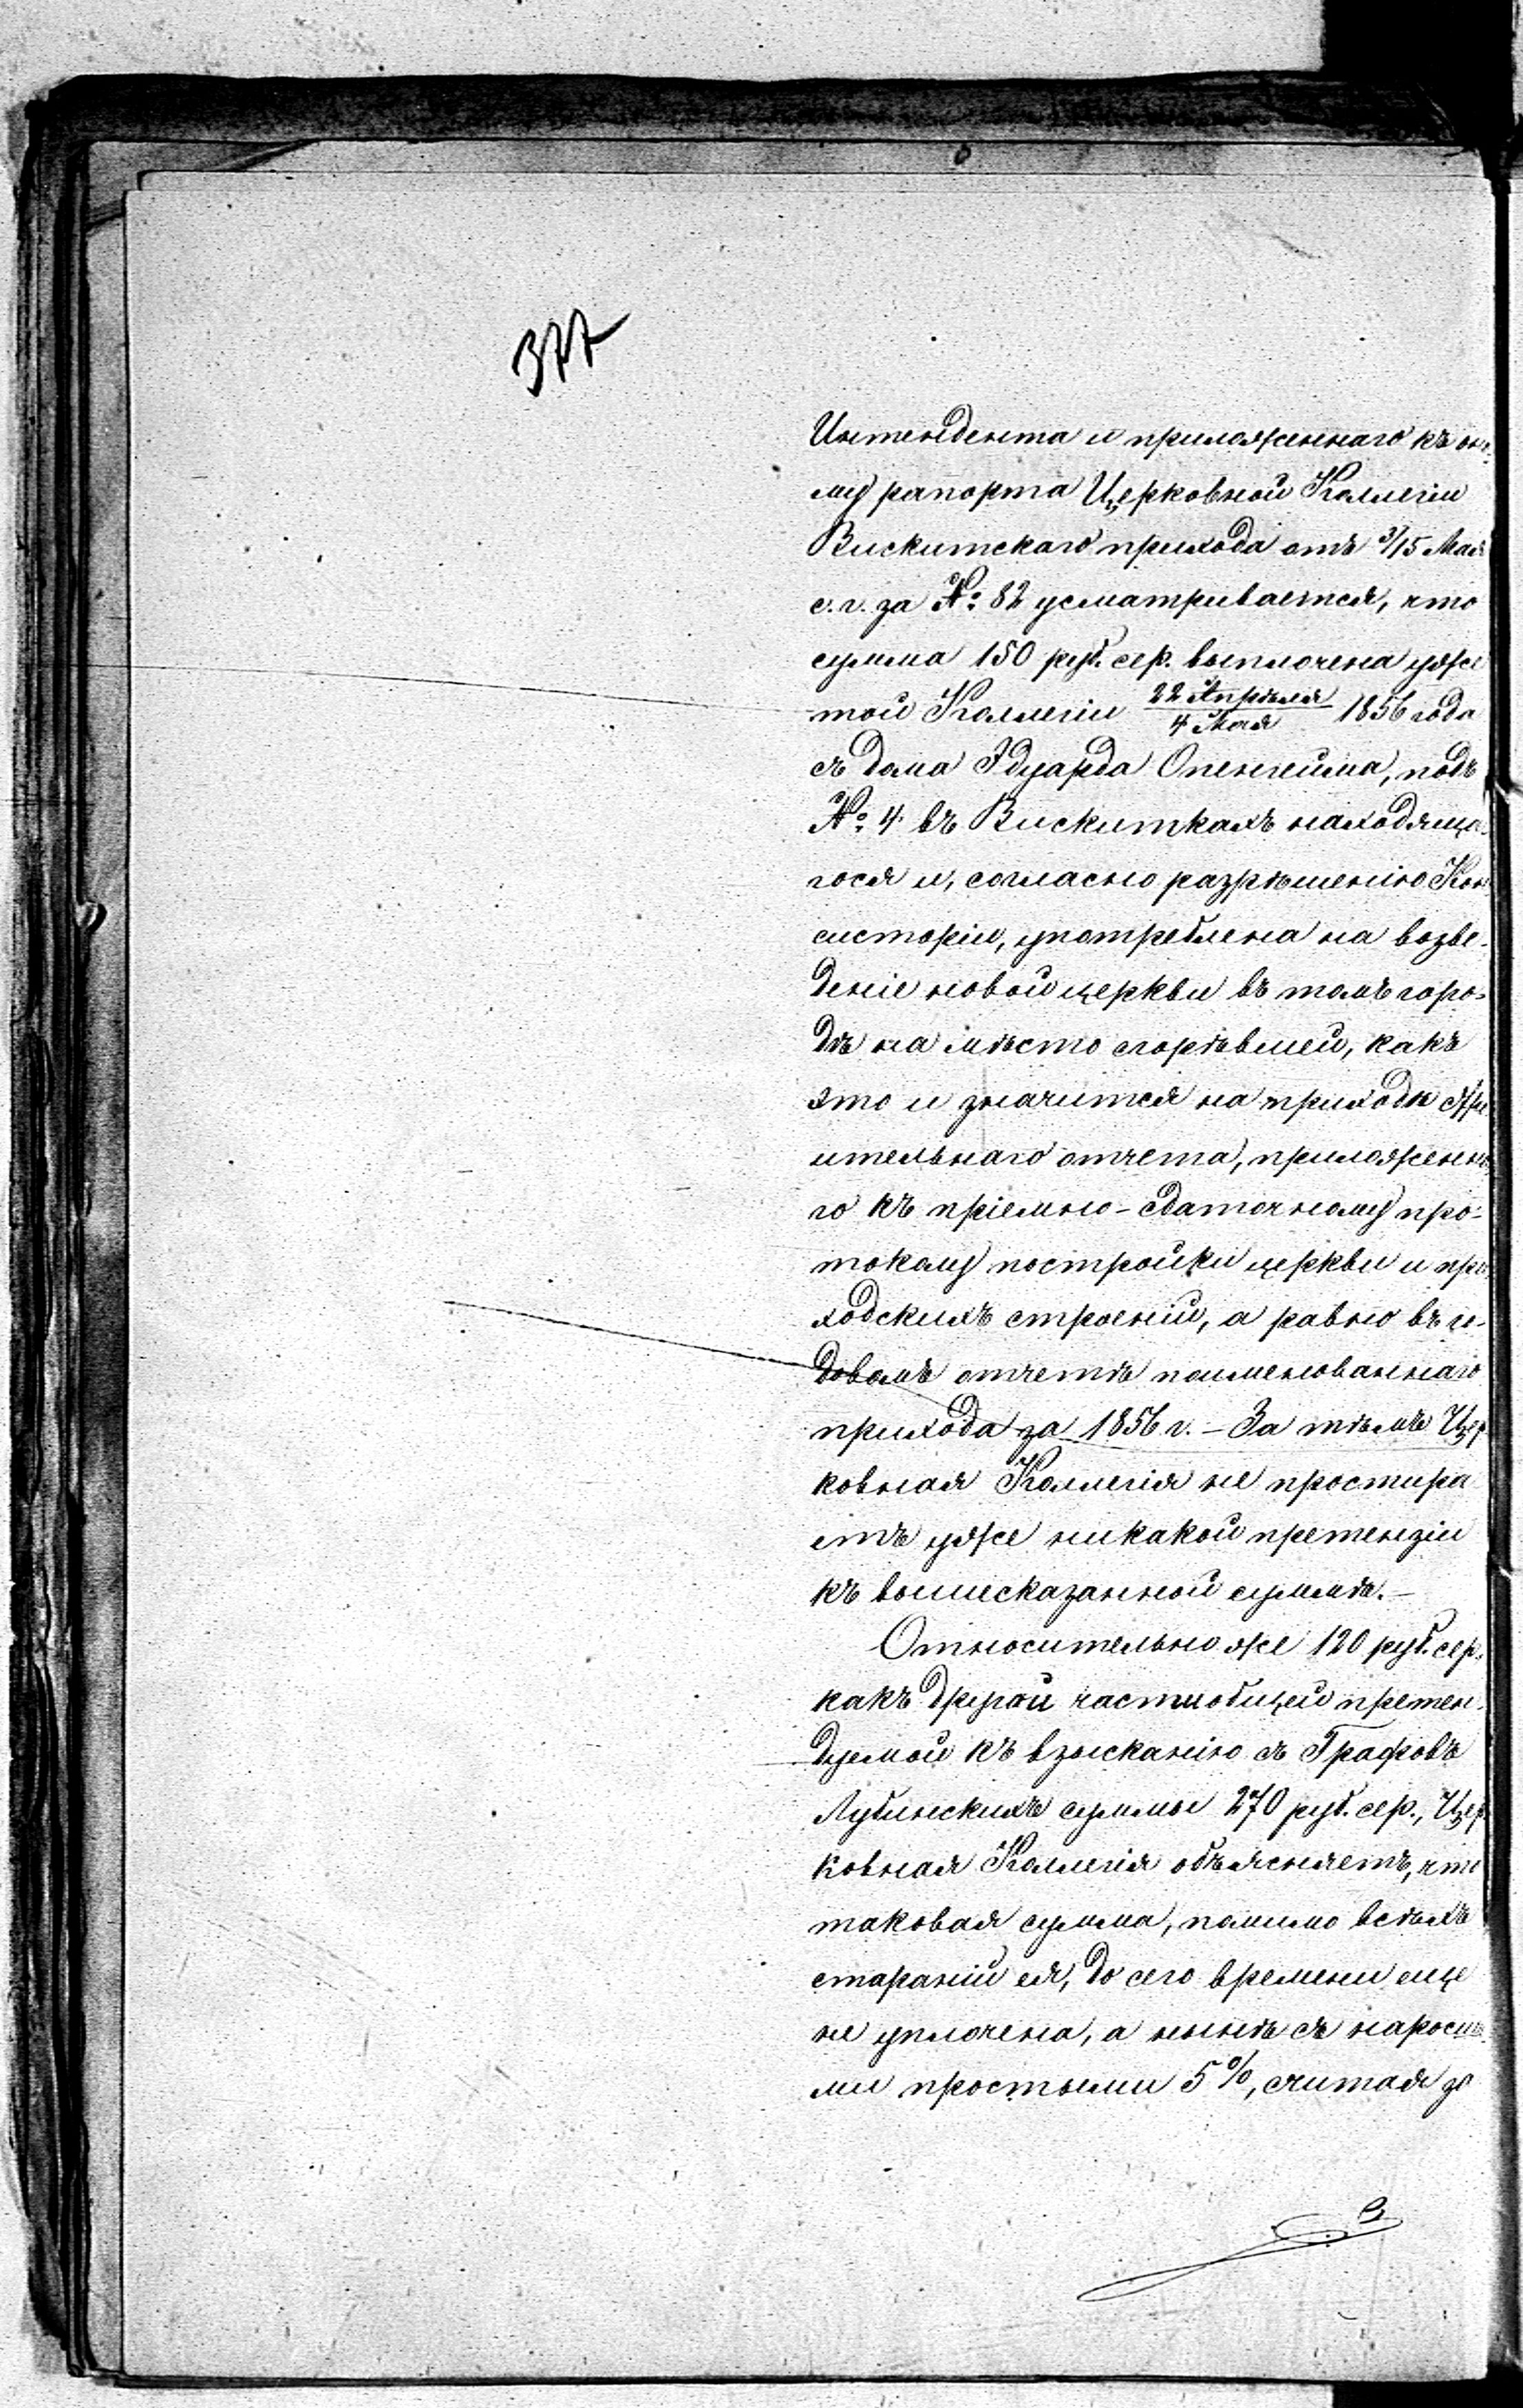 377
Интендента и приложеннаго къ оно-
му рапорта Церковной Коллегіи
Вискитскаго прихода отъ 3/15 Мая
с. г. за №: 82 усматривается, что
сумма 150 руб. сер. выплочена уже
той Коллегіи 22 Апрѣля/4 Мая 1856 года
съ дома Эдуарда Опенгейма, подъ
№: 4 въ Вискиткахъ находяща-
гося и, согласно разрѣшенію Кон-
систоріи, употреблена на возве-
деніе новой церкви въ томъ горо-
дѣ на мѣсто сгорѣвшей, какъ
это и значится на приходѣ
ительнаго отчета, приложенна-
го къ пріемно-сдаточному про-
токолу постройки церкви и при-
ходскихъ строеній, а равно въ го-
довомъ отчетѣ поименованнаго
прихода за 1856 г. – За тѣмъ Цер-
ковная Коллегія не простира-
етъ уже никакой претензіи
къ вышесказанной суммѣ. –
Относительно же 120 руб. сер.
какъ другой части общей претен-
дуемой къ взысканію съ Графовъ
Лубинскихъ суммы 270 руб. сер., Цер-
ковная Коллегія объясняетъ, что
таковая сумма, помимо всѣхъ
стараній ея, до сего времени еще
не уплочена, а нынѣ съ наросш-
ми простыми 5%, считая за